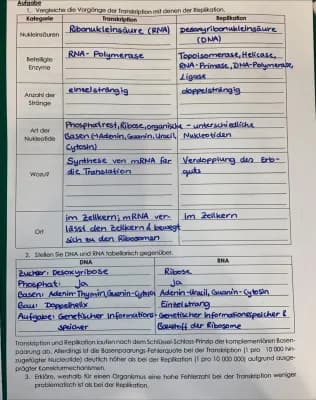 Aufgabe
1. Vergleiche die Vorgänge der Transkription mit denen der Replikation.
Kategorie Transkription Replikation
Nukleinsäuren Ribonukleinsäure (RNA) Desoxyribonukleinsäure
(DNA)
Beteiligte Enzyme RNA-Polymerase Topoisomerase, Helicase,
RNA-Primase, DNA-Polymerase,
Ligase
Anzahl der Stränge einzelsträngig doppelsträngig
Art der Nukleotide Phosphatrest, Ribose, organische - unterschiedliche
Basen (Adenin, Guanin, Uracil, Nukleotiden
Cytosin)
Wozu? Synthese von mRNA für Verdopplung des Erb-
die Translation guts
Ort im Zellkern; mRNA ver- im Zellkern
lässt den Zellkern & bewegt
sich zu den Ribosomen
2. Stellen Sie DNA und RNA tabellarisch gegenüber.
DNA RNA
Zucker: Desoxyribose Ribose
Phosphat: Ja Ja
Basen: Adenin-Thymin, Guanin-Cytosin Adenin-Uracil, Guanin-Cytosin
Bau: Doppelhelix Einzelstrang
Aufgabe: Genetischer Informations- Genetischer Informationsspeicher &
speicher Baustoff der Ribosome
Transkription und Replikation laufen nach dem Schlüssel-Schloss-Prinzip der komplementären Basen-
paarung ab. Allerdings ist die Basenpaarungs-Fehlerquote bei der Transkription (1 pro 10 000 hin-
zugefügter Nukleotide) deutlich höher als bei der Replikation (1 pro 10 000 000) aufgrund ausge-
prägter Korrekturmechanismen.
3. Erkläre, weshalb für einen Organismus eine hohe Fehlerzahl bei der Transkription weniger
problematisch ist als bei der Replikation.